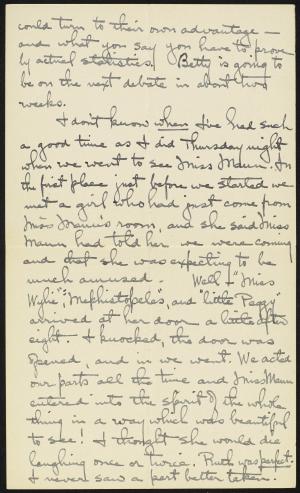 could turn to their own advantage —
and what you say you have to prove
by actual statistics. Betty is going to
be on the next debate in about two
weeks.
I don't know when I've had such
a good time as I did Thursday night
when we went to see Miss Mann. In
the first place just before we started we
met a girl who had just come from
Miss Mann's room, and she said Miss
Mann had told her we were coming
and that she was expecting to be
much amused. Well — "Miss
Wylie", "Mephistopeles", and "little Peggy"
arrived at her door a little after
eight. I knocked, the door was
opened, and in we went. We acted
our parts all the time and Miss Mann
entered into the spirit of the whole
thing in a way which was beautiful
to see! I thought she would die
laughing once or twice. Ruth was perfect.
I never saw a part better taken.